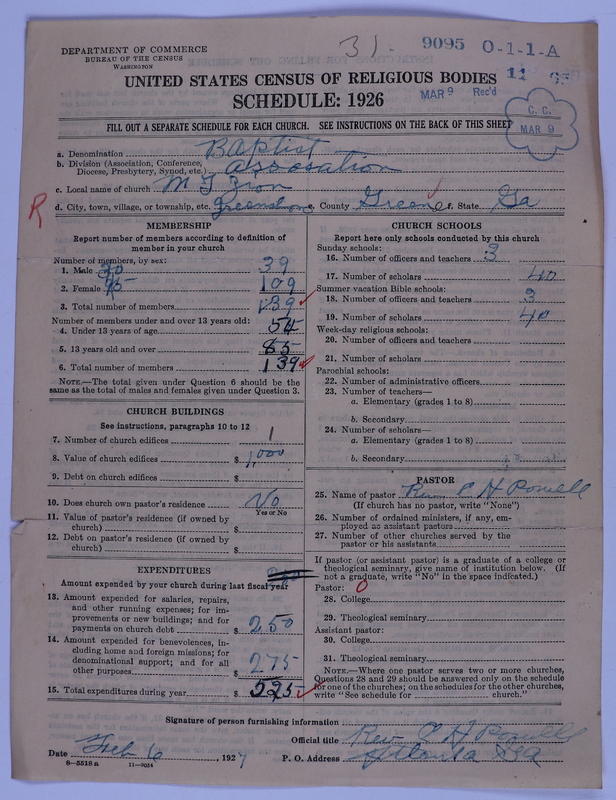 31-
9095 O-1-1-A
DEPARTMENT OF COMMERCE
BUREAU OF THE CENSUS
WASHINGTON
UNITED STATES CENSUS OF RELIGIOUS BODIES
11
SCHEDULE: 1926
MAR 9 Rec'd
C. C.
MAR 9
FILL OUT A SEPARATE SCHEDULE FOR EACH CHURCH. SEE INSTRUCTIONS ON THE BACK OF THIS SHEET
a. Denomination Baptist
b. Division (Association, Conference, Diocese, Presbytery, Synod, etc.) Association
c. Local name of church M T Zion
R
d. City, town, village, or township, etc. Greensboro e. County Green f. State Ga
MEMBERSHIP
Report number of members according to definition of
member in your church
Number of members, by sex:
1. Male 30 39
2. Female 95 109
3. Total number of members 139
Number of members under and over 13 years old:
4. Under 13 years of age 54
5. 13 years old and over 85
6. Total number of members 139
NOTE.—The total given under Question 6 should be
same as the total of males and females given under Question 3.
CHURCH BUILDINGS
See instructions, paragraphs 10 to 12
7. Number of church edifices 1
8. Value of church edifices $ 1,000
9. Debt on church edifices $
10. Does church own pastor's residence? No
Yes or No
11. Value of pastor's residence (if owned by
church) $
12. Debt on pastor's residence (if owned by
church) $
EXPENDITURES
Amount expended by your church during last fiscal year
13. Amount expended for salaries, repairs,
and other running expenses; for im-
provements or new buildings; and for
payments on church debt $ 250
14. Amount expended for benevolences, in-
cluding home and foreign missions; for
denominational support; and for all
other purposes $ 275
15. Total expenditures during year $ 525
CHURCH SCHOOLS
Report here only schools conducted by this church
Sunday schools:
16. Number of officers and teachers 3
17. Number of scholars 40
Summer vacation Bible schools:
18. Number of officers and teachers 3
19. Number of scholars 40
Week-day religious schools:
20. Number of officers and teachers
21. Number of scholars
Parochial schools:
22. Number of administrative officers
23. Number of teachers—
a. Elementary (grades 1 to 8)
b. Secondary
24. Number of scholars—
a. Elementary (grades 1 to 8)
b. Secondary
PASTOR
25. Name of pastor Rev. C H Powell
(If church has no pastor, write "None")
26. Number of ordained ministers, if any, em-
ployed as assistant pastors
27. Number of other churches served by the
pastor or his assistants
If pastor (or assistant pastor) is a graduate of a college or
theological seminary, give name of institution below. (If
not a graduate, write "No" in the space indicated.)
Pastor: 0
28. College
29. Theological seminary
Assistant pastor:
30. College
31. Theological seminary
NOTE.—Where one pastor serves two or more churches,
Questions 28 and 29 should be answered only on the schedule
for one of the churches; on the schedules for the other churches,
write "See schedule for church."
Signature of person furnishing information
Official title Rev C H Powell
Date Feb 6, 1927 P. O. Address Atlanta Ga
8—5518 a 11—9034